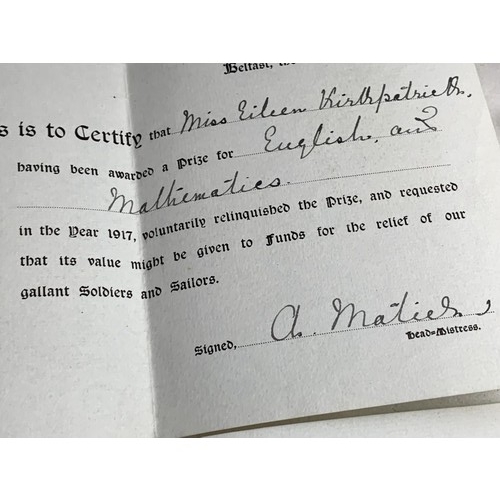 Belfast, the
s is to Certify that Miss Eileen Kirkpatrick,
having been awarded a Prize for English, and
Mathematics.
in the Year 1917, voluntarily relinquished the Prize, and requested
that its value might be given to Funds for the relief of our
gallant Soldiers and Sailors.
Signed, A.
Head=Mistress.